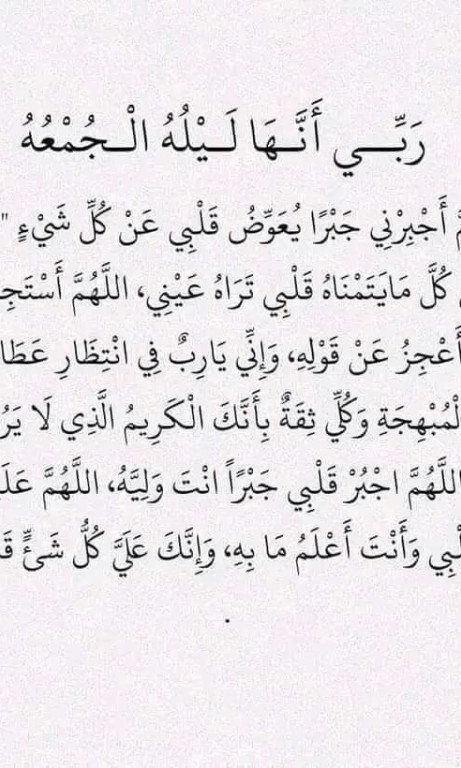 رَبِّـــي أَنَّـهَا لَـيْلُهُ الْـجُمْعُهُ
أَجْبِرْنِي جَبْرًا يُعَوِّضُ قَلْبِي عَنْ كُلِّ شَيْءٍ "
كُلَّ مَايَتَمْنَاهُ قَلْبِي تَرَاهُ عَيْنِي، اللَّهُمَّ أَسْتَجِ
أَعْجِزُ عَنْ قَوْلِهِ، وَإِنِّي يَارِبٌ فِي انْتِظَارِ عَطَا
لْمُبْهِجَةِ وَكُلِّي ثِقَةٌ بِأَنَّكَ الْكَرِيمُ الَّذِي لَا يَرُ
اللَّهُمَّ اجْبُرْ قَلْبِي جَبْرًاً انْتَ وَلِيَّهُ، اللَّهُمَّ عَلَ
لْبِي وَأَنْتَ أَعْلَمُ مَا بِهِ، وَإِنَّكَ عَلَيَّ كُلُّ شَئٍّ قَ
.